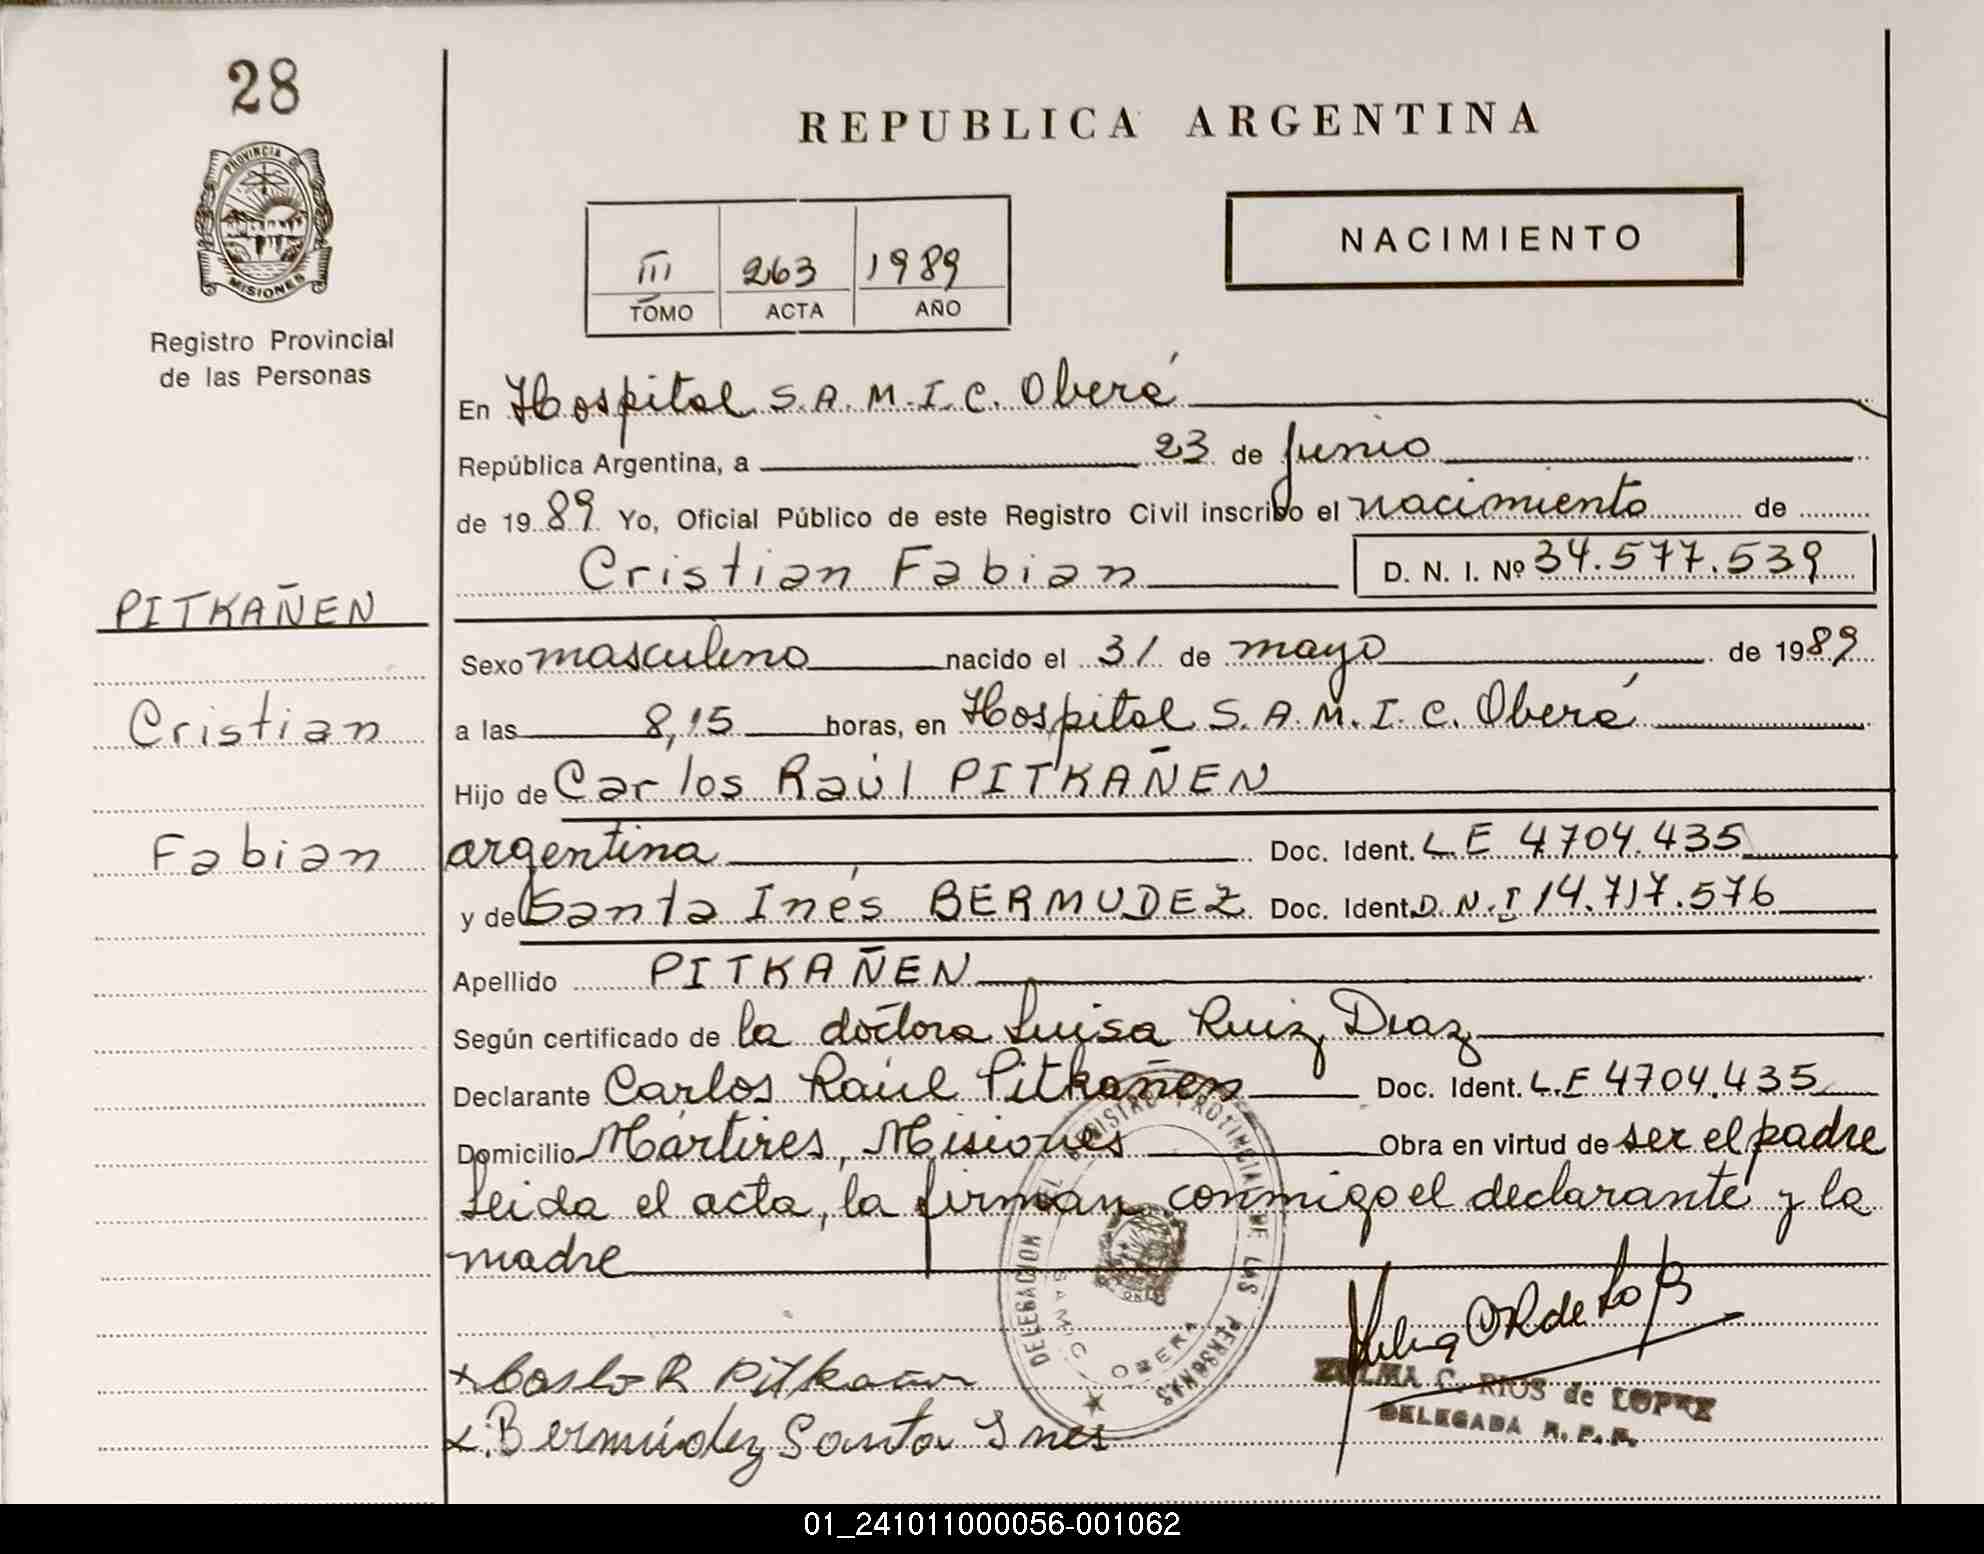 28
PROVINCIA DE
MISIONES
Registro Provincial
de las Personas
REPUBLICA ARGENTINA
III 263 1989
TOMO ACTA AÑO
NACIMIENTO
En Hospital S.A.M.I.C. Oberá
República Argentina, a 23 de Junio
de 1989 Yo, Oficial Público de este Registro Civil inscribo el nacimiento de
Cristian Fabian D. N. I. Nº 34.577.539
PITKAÑEN
Cristian
Fabian
Sexo masculino nacido el 31 de mayo de 1989
a las 8,15 horas, en Hospital S.A.M.I.C. Oberá
Hijo de Carlos Raúl PITKAÑEN
argentina Doc. Ident. L.E 4704.435
y de Santa Inés BERMUDEZ Doc. Ident. D.N.I 14.717.576
Apellido PITKAÑEN
Según certificado de la doctora Luisa Ruiz Diaz
Declarante Carlos Raúl Pitkañen Doc. Ident. L.E 4704.435
Domicilio Mártires, Misiones Obra en virtud de ser el padre
Leida el acta, la firman conmigo el declarante y la
madre
DELEGACION DEL REGISTRO PROVINCIAL DE LAS PERSONAS
SAMIC OBERA
ZULMA C. RIOS de LOPEZ
DELEGADA R. P. P.
x Carlos R Pitkañen
x Bermúdez Santa Ines
01_241011000056-001062